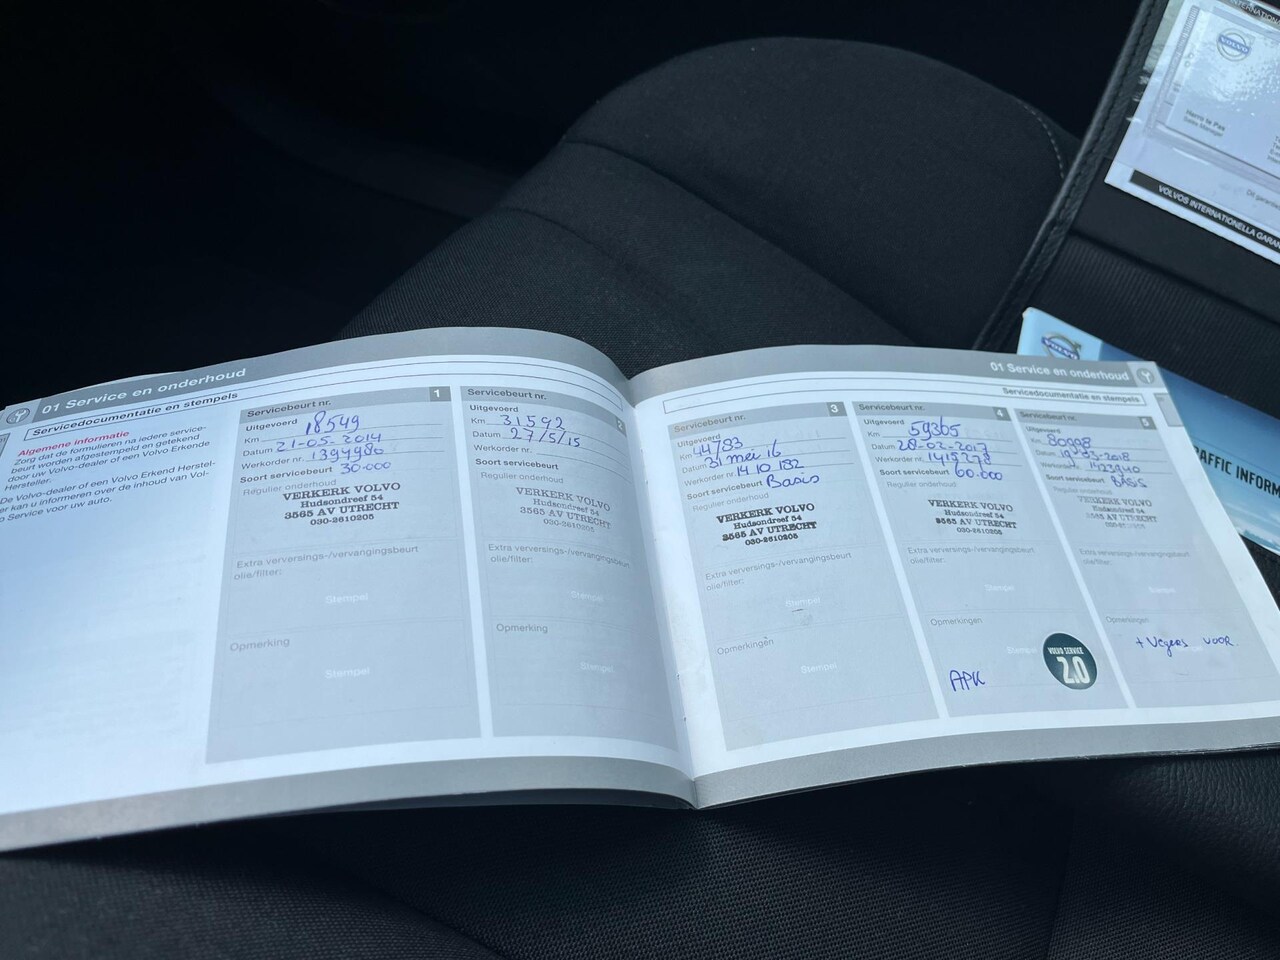 01 Service en onderhoud
Servicedocumentatie en stempels
Algemene informatie
Zorg dat de formulieren na iedere service-
beurt worden afgestempeld en getekend
door uw Volvo-dealer of een Volvo Erkende
Hersteller.
De Volvo-dealer of een Volvo Erkend Herstel-
ler kan u informeren over de inhoud van Vol-
Service voor uw auto.
Servicebeurt nr. 1
Uitgevoerd
Km 18549
Datum 21-05-2014
Werkorder nr. 1394980
Soort servicebeurt 30.000
Regulier onderhoud
VERKERK VOLVO
Hudsondreef 54
3565 AV UTRECHT
030-2610205
Extra verversings-/vervangingsbeurt
olie/filter:
Stempel
Opmerking
Stempel
Servicebeurt nr. 2
Uitgevoerd
Km 31592
Datum 27/5/15
Werkorder nr.
Soort servicebeurt
Regulier onderhoud
VERKERK VOLVO
Hudsondreef 54
3565 AV UTRECHT
030-2610205
Extra verversings-/vervangingsbeurt
olie/filter:
Stempel
Opmerking
Stempel
01 Service en onderhoud
Servicedocumentatie en stempels
Servicebeurt nr. 3
Uitgevoerd
Km
Datum 31 mei 16
Werkorder nr. 1410132
Soort servicebeurt Basis
Regulier onderhoud
VERKERK VOLVO
Hudsondreef 54
3565 AV UTRECHT
030-2610205
Extra verversings-/vervangingsbeurt
olie/filter:
Stempel
Opmerkingen
Stempel
Servicebeurt nr. 4
Uitgevoerd
Km 59365
Datum 28-02-2017
Werkorder nr. 1415278
Soort servicebeurt 60.000
Regulier onderhoud
VERKERK VOLVO
Hudsondreef 54
3565 AV UTRECHT
030-2610205
Extra verversings-/vervangingsbeurt
olie/filter:
Stempel
Opmerkingen
Stempel
APK
VOLVO SERVICE
2.0
Servicebeurt nr. 5
Uitgevoerd
Km 80998
Datum
Werkorder nr.
Soort servicebeurt BASIS
Regulier onderhoud
VERKERK VOLVO
Hudsondreef 54
3565 AV UTRECHT
030-2610205
Extra verversings-/vervangingsbeurt
olie/filter:
Stempel
Opmerkingen
VOOR
VOLVO
Sales Manager
VOLVOS INTERNATIONELLA GARAN
VOLVO
RAFFIC INFORM